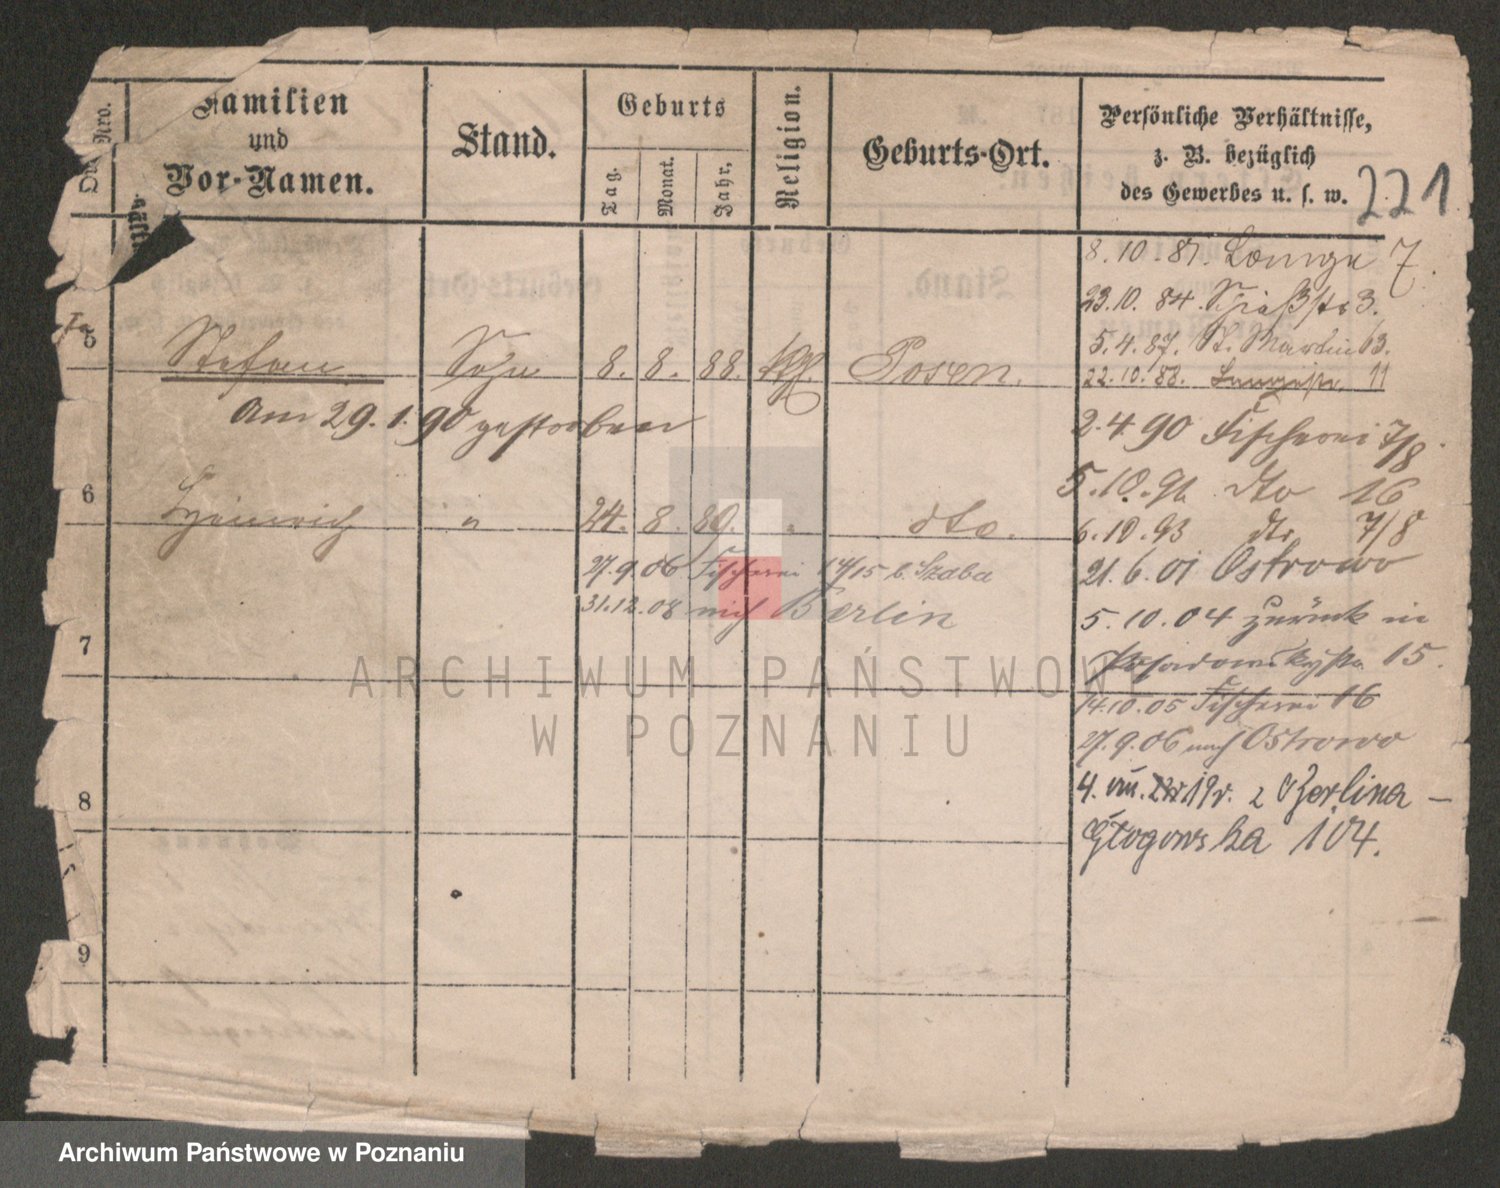 Nro.
Familien
und
Vor-Namen.
Stand.
Geburts
Tag.
Monat.
Jahr.
Religion.
Geburts-Ort.
Persönliche Verhältnisse,
z. B. bezüglich
des Gewerbes u. s. w.
221
8.10.81. Lange 7.
23.10.84. 3.
5.4.87. St. Martin 63.
22.10.88. Langestr. 11
5 Stefan Sohn 8. 8. 88. kth. Posen.
am 29.1.90 gestorben
2.4.90 Fischerei 7/8.
5.10.91 dto 16
6 Heinrich " 24. 8. 89. " dto.
6.10.93 dto 7/8
27.9.06 Fischerei 14/15 b. Szaba
21.6.01 Ostrowo
31.12.08 nach Berlin
5.10.04 zurück in
7
Posadowskystr. 15.
14.10.05 Fischerei 16
27.9.06 nach Ostrowo
8
4. 19r. z Berlina –
Głogowska 104.
9
ARCHIWUM PAŃSTWOWE
W POZNANIU
Archiwum Państwowe w Poznaniu